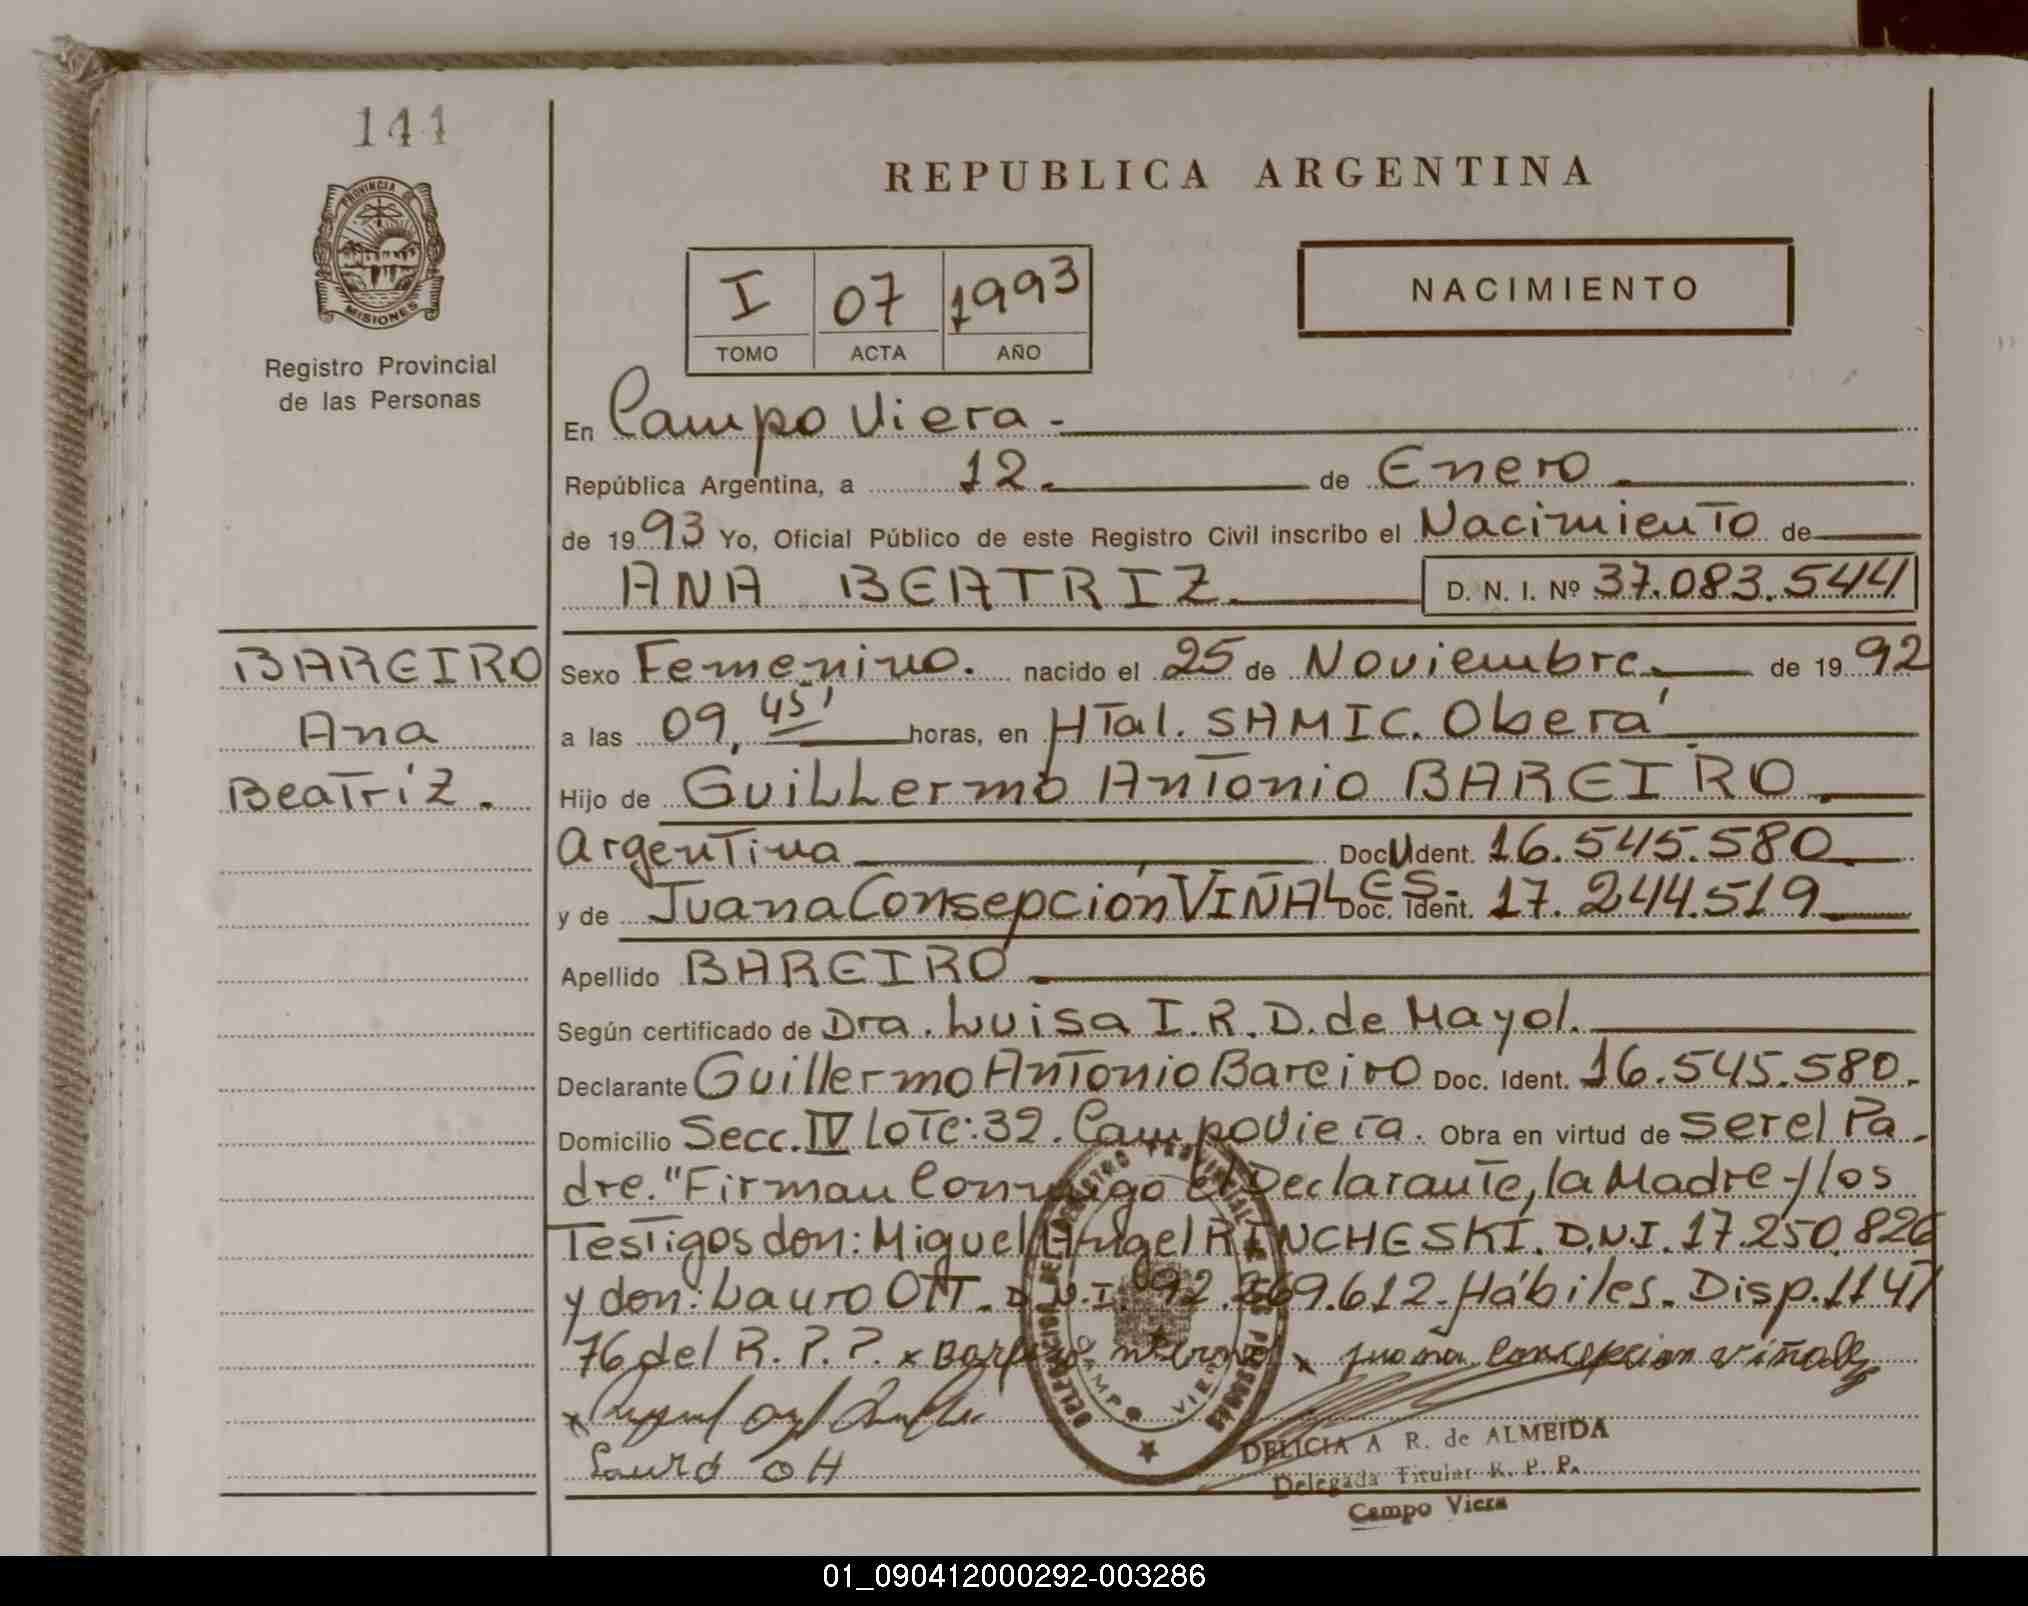 144
PROVINCIA
MISIONES
Registro Provincial
de las Personas
REPUBLICA ARGENTINA
I 07 1993
TOMO ACTA AÑO
NACIMIENTO
En Campo Viera -
República Argentina, a 12. de Enero
de 1993 Yo, Oficial Público de este Registro Civil inscribo el Nacimiento de
ANA BEATRIZ. D. N. I. Nº 37.083.544
BAREIRO
Ana
Beatríz.
Sexo Femenino. nacido el 25 de Noviembre de 1992
a las 09,45' horas, en HTal. SAMIC. Oberá
Hijo de Guillermo Antonio BAREIRO.
Argentina Doc. Ident. 16.545.580
y de Juana Consepción VIÑALES. Doc. Ident. 17.244.519
Apellido BAREIRO
Según certificado de Dra. Luisa I.R.D. de Mayol.
Declarante Guillermo Antonio Bareiro Doc. Ident. 16.545.580.
Domicilio Secc. IV Lote: 32. Campo Viera. Obra en virtud de ser el Pa-
dre. "Firman Conmigo el Declarante, la Madre y los
Testigos don: Miguel Angel RINCHESKI. D.N.I. 17.250.826
y don: Lauro OTT. D.N.I. 92.269.612. Hábiles. Disp. 114/
76 del R.P.P. x x Juana Concepcion Viñales
x
Lauro Ott
DELEGACION DEL REGISTRO PROVINCIAL DE LAS PERSONAS
CAMPO VIERA
DELICIA A R. de ALMEIDA
Delegada Titular R. P. P.
Campo Viera
01_090412000292-003286